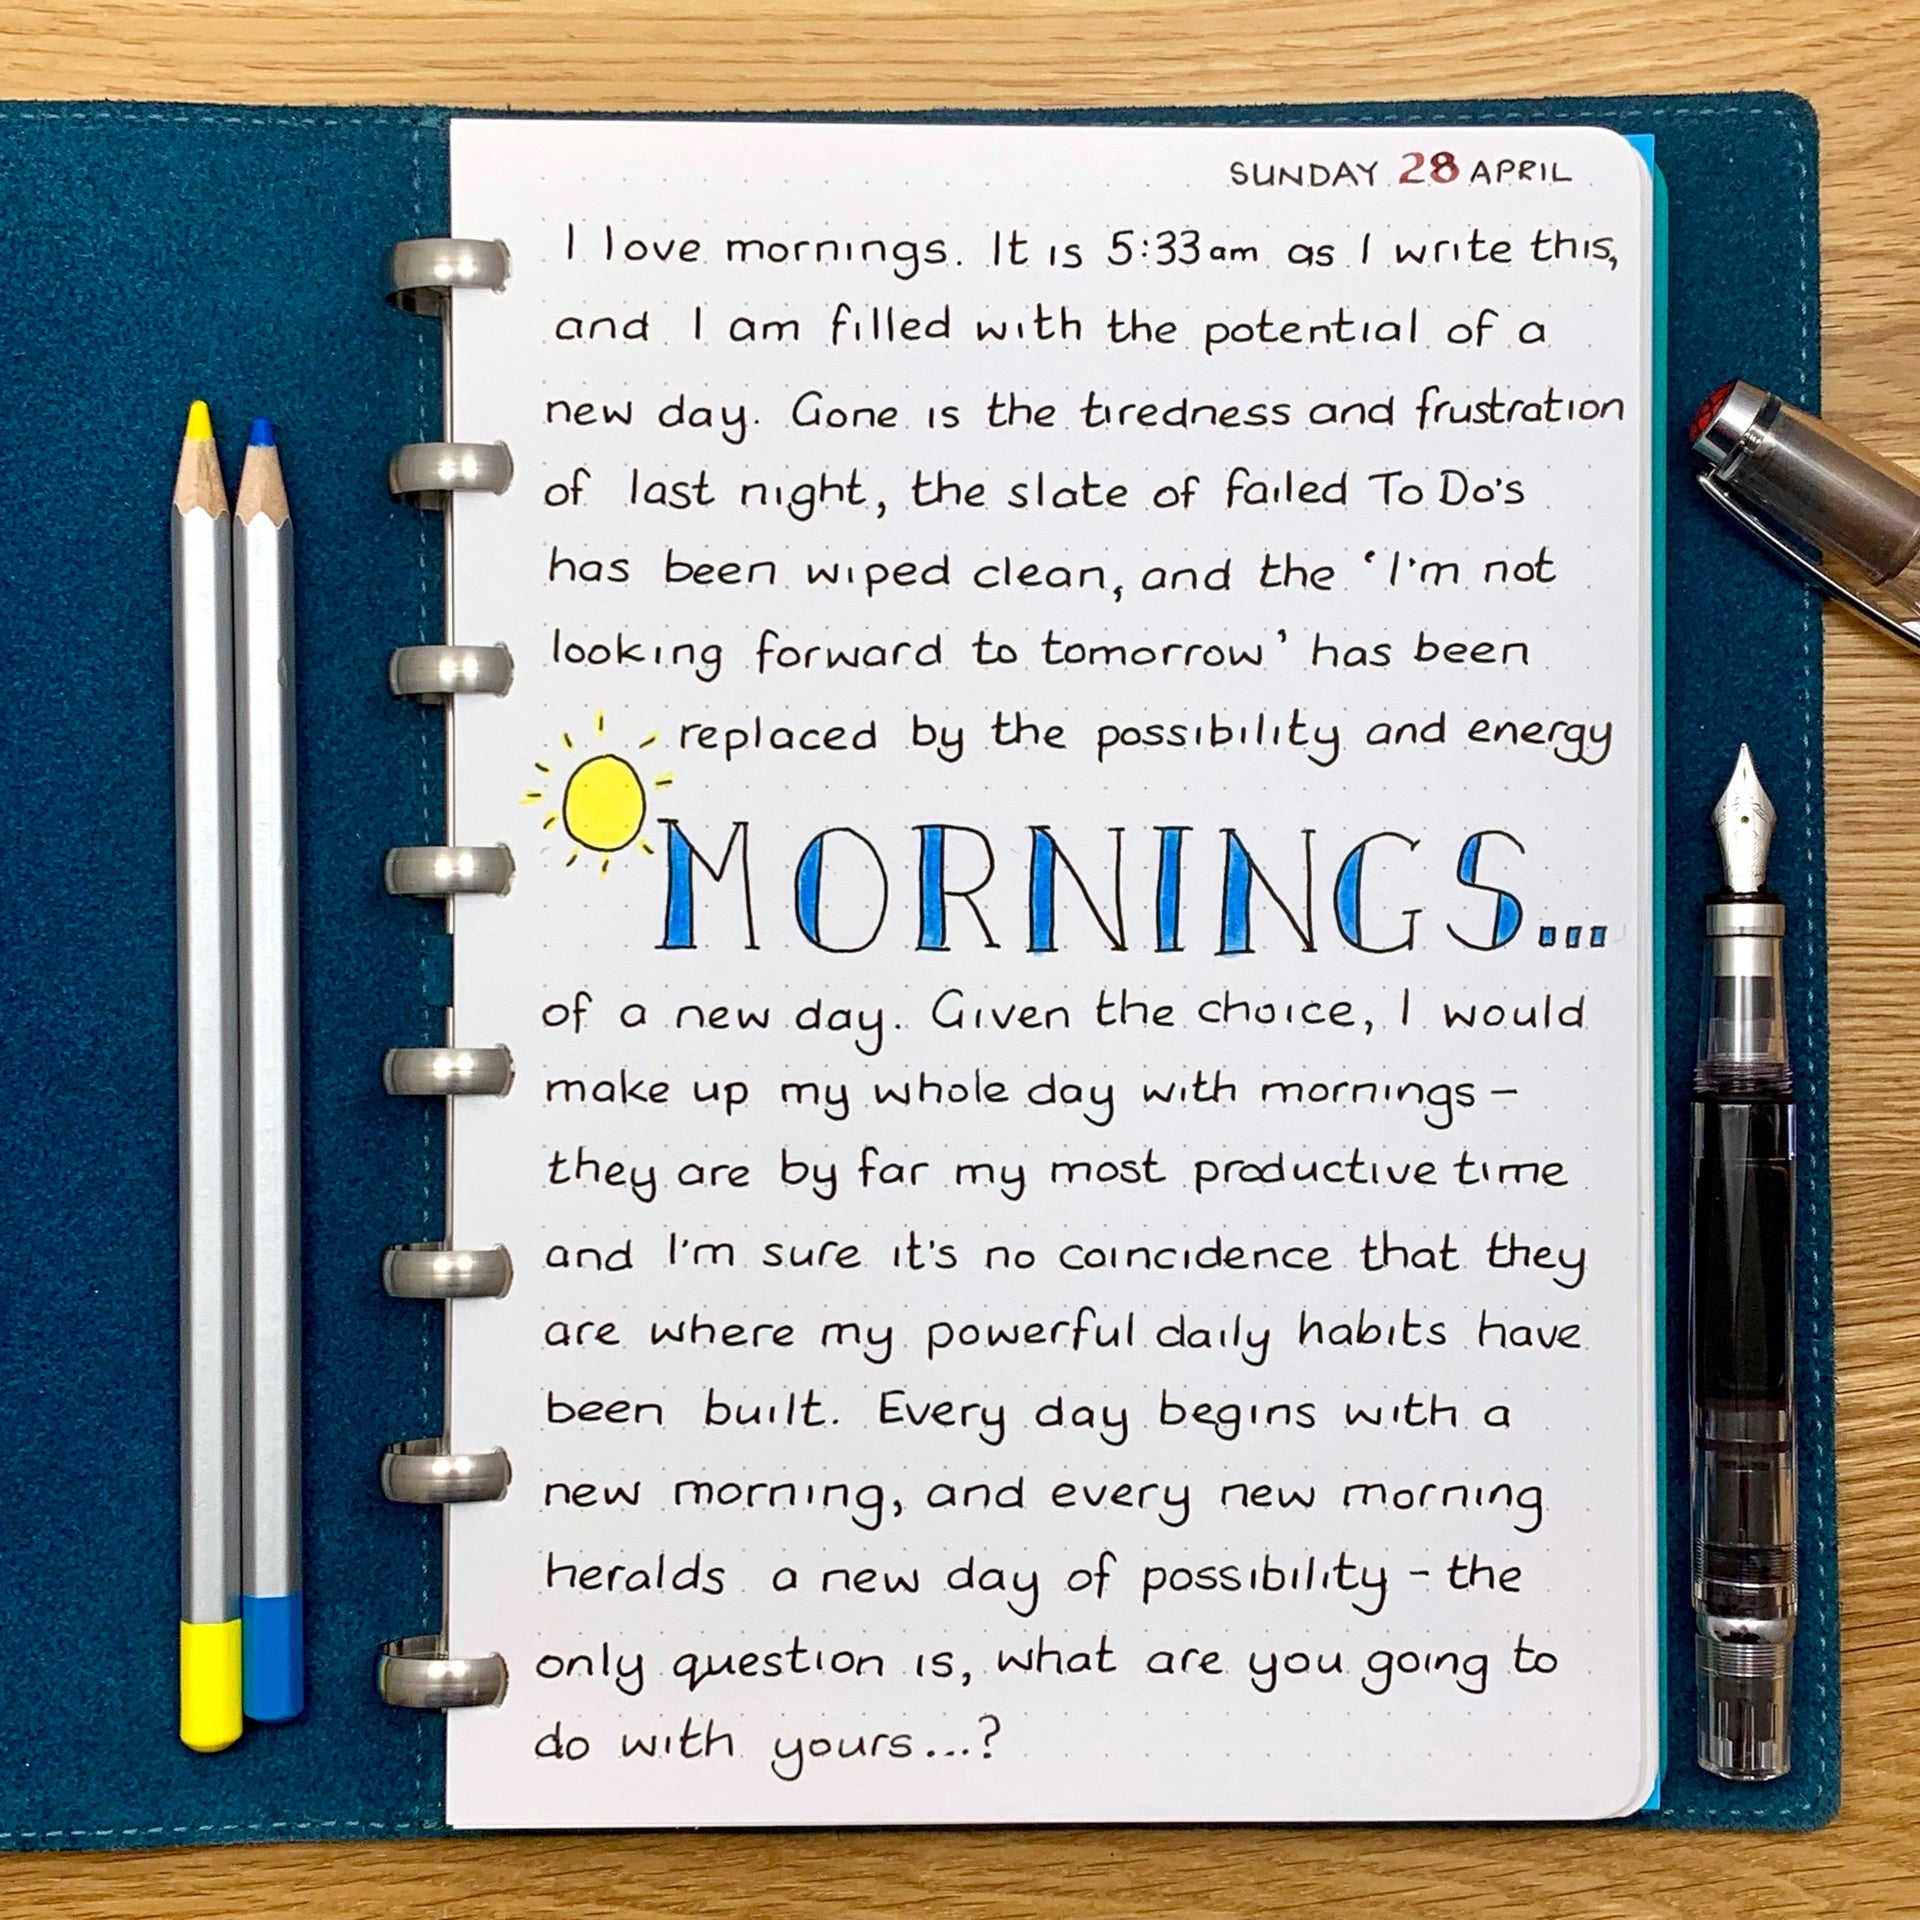 SUNDAY 28 APRIL
I love mornings. It is 5:33am as I write this,
and I am filled with the potential of a
new day. Gone is the tiredness and frustration
of last night, the slate of failed To Do's
has been wiped clean, and the 'I'm not
looking forward to tomorrow' has been
replaced by the possibility and energy
MORNINGS...
of a new day. Given the choice, I would
make up my whole day with mornings -
they are by far my most productive time
and I'm sure it's no coincidence that they
are where my powerful daily habits have
been built. Every day begins with a
new morning, and every new morning
heralds a new day of possibility - the
only question is, what are you going to
do with yours...?